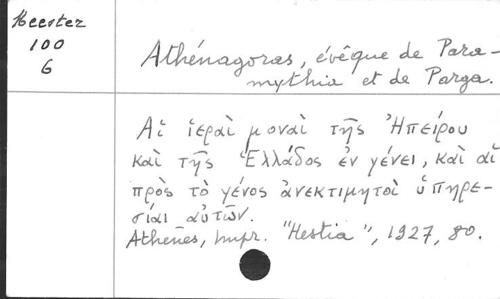 Meester
100
6
Athénagoras, évêque de Para-
mythia et de Parga.
Αἱ ἱεραὶ μοναὶ τῆς Ἠπείρου
καὶ τῆς Ἑλλάδος ἐν γένει, καὶ αἱ
πρὸς τὸ γένος ἀνεκτιμητοὶ ὑπηρε-
σίαι αὐτῶν.
Athènes, Impr. "Hestia", 1927, 80.